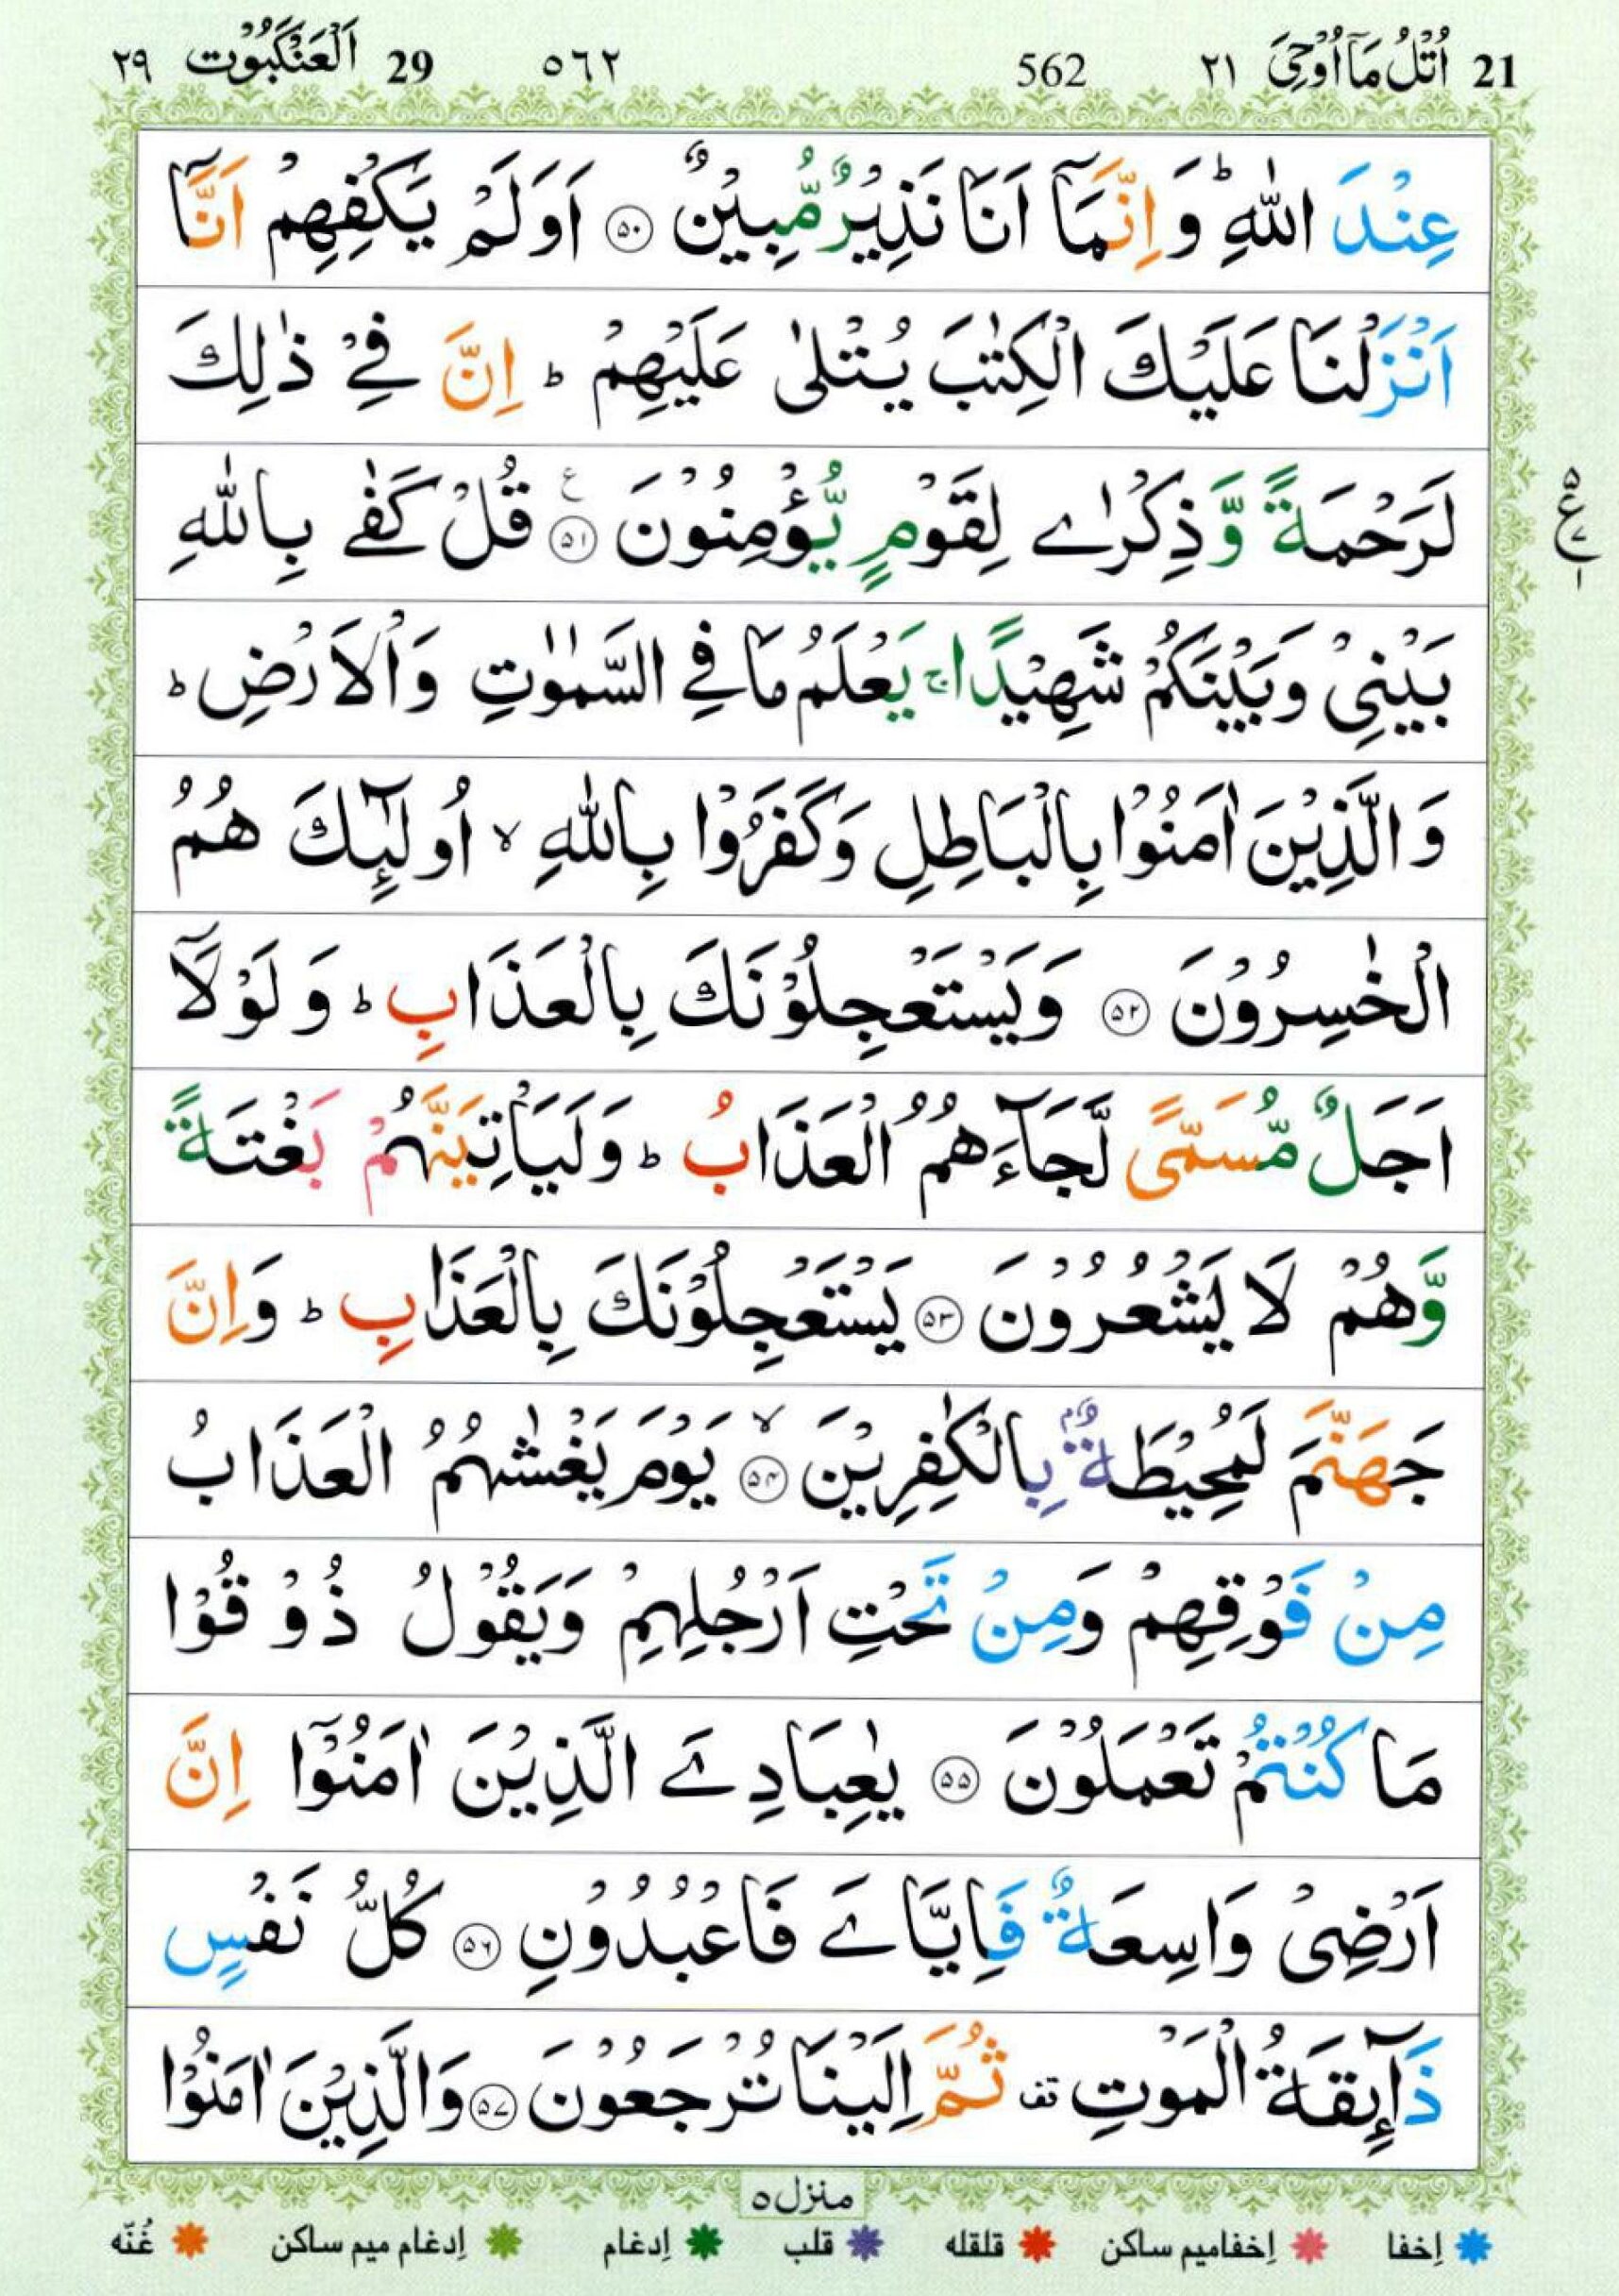 21 اُتْلُ مَاۤ اُوْحِیَ ٢١ 562 ٥٦٢ 29 اَلْعَنْكَبُوْت ٢٩
عِنْدَ اللّٰهِ ؕ وَ اِنَّمَاۤ اَنَا نَذِیْرٌ مُّبِیْنٌ ۝۵۰ اَوَلَمْ یَكْفِهِمْ اَنَّاۤ
اَنْزَلْنَا عَلَیْكَ الْكِتٰبَ یُتْلٰی عَلَیْهِمْ ؕ اِنَّ فِیْ ذٰلِكَ
لَرَحْمَةً وَّ ذِكْرٰے لِقَوْمٍ یُّؤْمِنُوْنَ ۝۵۱ ع قُلْ كَفٰے بِاللّٰهِ
۵ ع ۷ ۱
بَیْنِیْ وَبَیْنَكُمْ شَهِیْدًا ۚ یَعْلَمُ مَا فِے السَّمٰوٰتِ وَالْاَرْضِ ؕ
وَ الَّذِیْنَ اٰمَنُوْا بِالْبَاطِلِ وَكَفَرُوْا بِاللّٰهِ ۙ اُولٰٓئِكَ هُمُ
الْخٰسِرُوْنَ ۝۵۲ وَیَسْتَعْجِلُوْنَكَ بِالْعَذَابِ ؕ وَ لَوْلَاۤ
اَجَلٌ مُّسَمًّی لَّجَآءَهُمُ الْعَذَابُ ؕ وَلَیَاْتِیَنَّهُمْ بَغْتَةً
وَّهُمْ لَا یَشْعُرُوْنَ ۝۵۳ یَسْتَعْجِلُوْنَكَ بِالْعَذَابِ ؕ وَاِنَّ
جَهَنَّمَ لَمُحِیْطَةٌۢ بِالْكٰفِرِیْنَ ۙ۝۵۴ یَوْمَ یَغْشٰىهُمُ الْعَذَابُ
مِنْ فَوْقِهِمْ وَمِنْ تَحْتِ اَرْجُلِهِمْ وَیَقُوْلُ ذُوْقُوْا
مَا كُنْتُمْ تَعْمَلُوْنَ ۝۵۵ یٰعِبَادِےَ الَّذِیْنَ اٰمَنُوْۤا اِنَّ
اَرْضِیْ وَاسِعَةٌ فَاِیَّاےَ فَاعْبُدُوْنِ ۝۵۶ كُلُّ نَفْسٍ
ذَآئِقَةُ الْمَوْتِ قف ثُمَّ اِلَیْنَا تُرْجَعُوْنَ ۝۵۷ وَالَّذِیْنَ اٰمَنُوْا
منزل ۵
اِخفا اِخفامیم ساکن قلقله قلب اِدغام اِدغام میم ساکن غُنّه